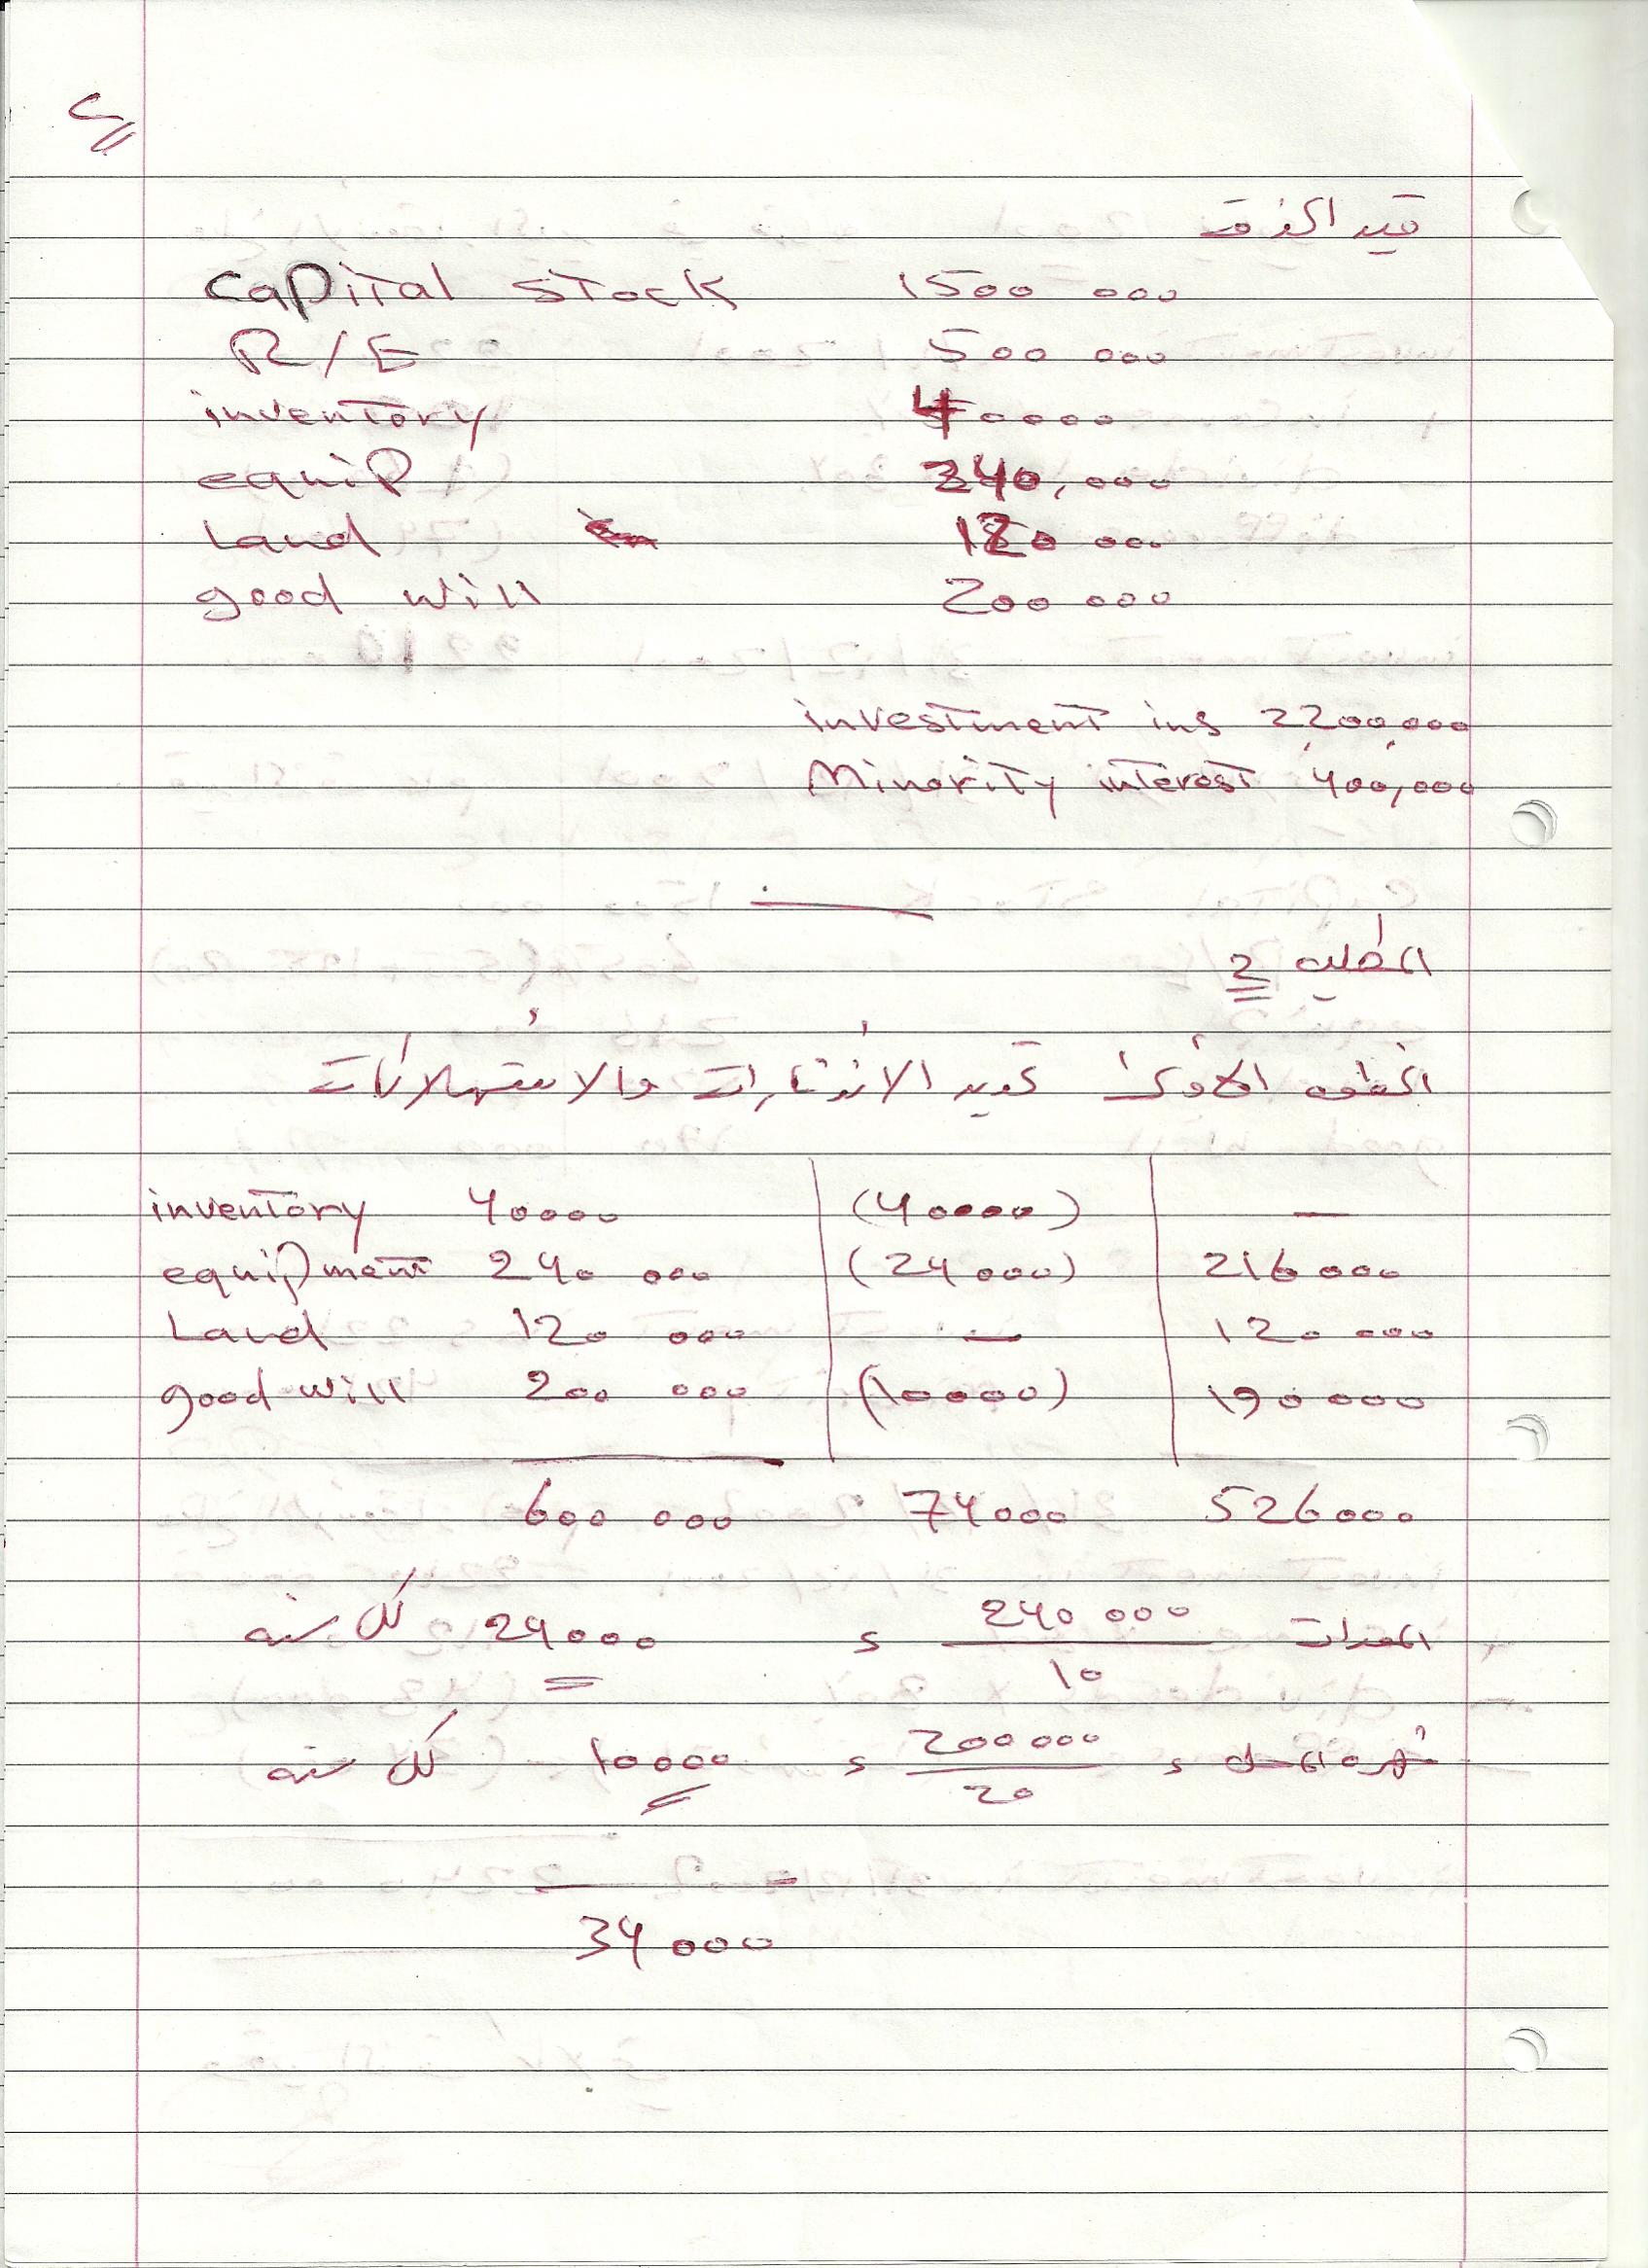 قيد الفرق
Capital stock 1500 000
R/E 500 000
inventory 40000
equip 240,000
Land 120 000
good will 200 000
investment in S 2200,000
Minority interest 400,000
المطلب 2
الخطوة الأولى تحديد الاندثارات والاستهلاكات
inventory 40000 (40000) —
equipment 240 000 (24000) 216000
Land 120 000 — 120 000
good will 200 000 (10000) 190000
600 000 74000 526000
المعدات 240 000 / 10 = 24000 كل سنه
شهرة المحل = 200000 / 20 = 10000 كل سنه
34 000